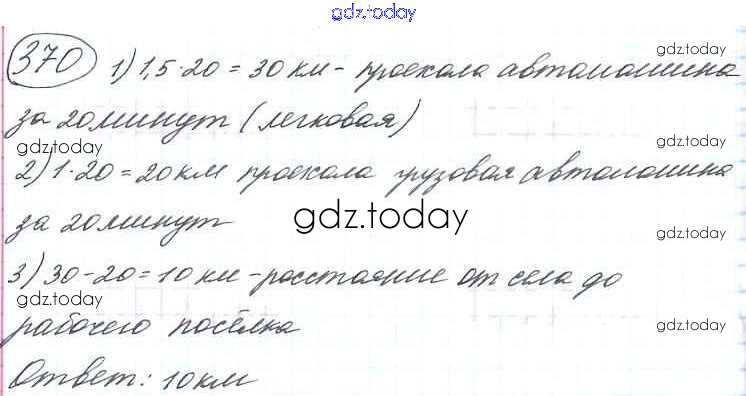 gdz.today
370 1) 1,5·20 = 30 км - проехала автомашина
gdz.today
за 20 минут (легковая)
gdz.today
gdz.today
2) 1·20 = 20 км проехала грузовая автомашина
gdz.today
за 20 минут
gdz.today
gdz.today
3) 30-20 = 10 км - расстояние от села до
gdz.today
рабочего посёлка
gdz.today
Ответ: 10 км